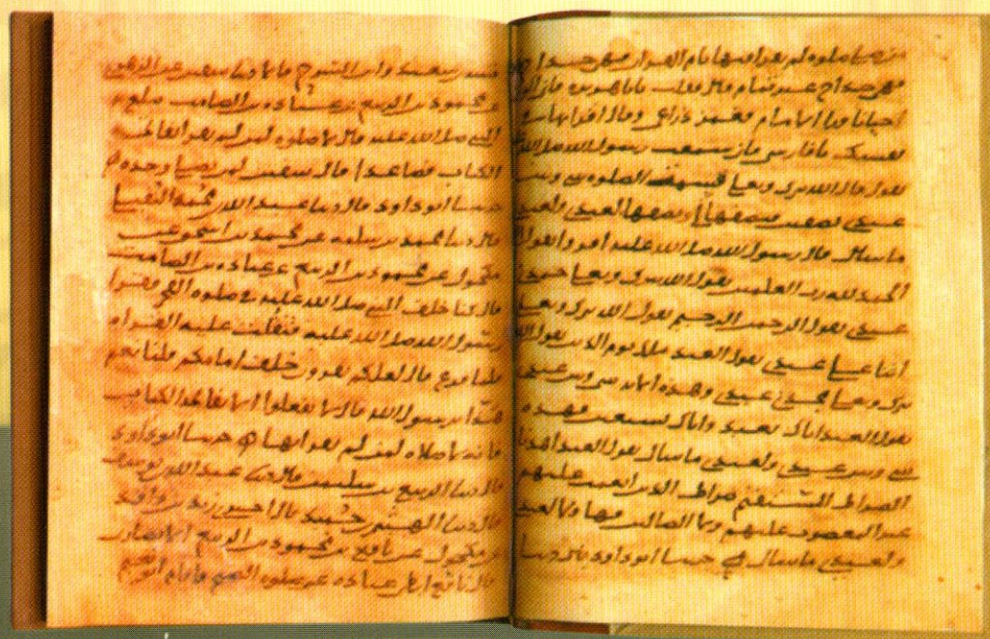 من صلى صلوه لم يقرا فيها بام القران فهي خداج
فهي خداج غير تمام قال فقلت يابا هريره فاني
احيانا ورا الامام فغمز ذراعي وقال اقرا بها
نفسك يا فارسي فاني سمعت رسول الله صلى الله
يقول قال الله تبرك وتعلى قسمت الصلوه بيني وبين
عبدي نصفين فنصفها لي ونصفها لعبدي ولعبدي
ما سال قال رسول الله صلى الله عليه اقروا يقول
الحمد لله رب العلمين يقول الله تبرك وتعلى حمدني
عبدي يقول الرحمن الرحيم يقول الله تبرك وتعلى
اثنا علي عبدي يقول العبد ملك يوم الدين يقول الله
تبرك وتعلى مجدني عبدي وهذه الايه بيني وبين عبدي
يقول العبد اياك نعبد واياك نستعين فهذه
بيني وبين عبدي ولعبدي ما سال يقول العبد اهدنا
الصراط المستقيم صراط الذين انعمت عليهم
غير المغضوب عليهم ولا الضالين فهاولا لعبدي
ولعبدي ما سال حدثنا ابو داود قال حدثنا
قتيبه بن سعيد وابن السرح قالا حدثنا سفين عن الزهري
عن محمود بن الربيع عن عباده بن الصامت يبلغ به
النبي صلى الله عليه قال لا صلوه لمن لم يقرا بفاتحه
الكتاب فصاعدا قال سفين لمن يصلي وحده
حدثنا ابو داود قال حدثنا عبد الله بن محمد النفيلي
قال حدثنا محمد بن سلمه عن محمد بن اسحق عن
مكحول عن محمود بن الربيع عن عباده بن الصامت
قال كنا خلف النبي صلى الله عليه في صلوه الفجر فقرا
رسول الله صلى الله عليه فثقلت عليه القراه
فلما فرغ قال لعلكم تقرون خلف امامكم قلنا نعم
هذا يرسول الله قال لا تفعلوا الا بفاتحه الكتاب
فانه لا صلاه لمن لم يقرا بها حدثنا ابو داود
قال حدثنا الربيع بن سليمن قال حدثنا عبد الله بن يوسف
قال حدثنا الهيثم بن حميد قال اخبرني زيد بن واقد
عن مكحول عن نافع بن محمود بن الربيع الانصاري
قال نافع ابطا عباده عن صلوه الصبح فاقام ابو نعيم